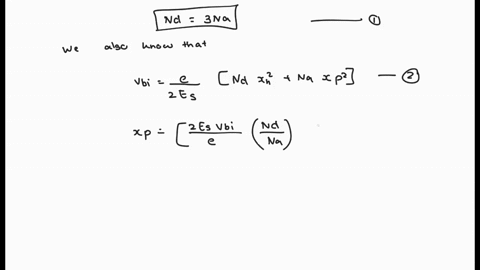 Nd = 3Na ——— ①
We also know that
Vbi = e/2Es [Nd xn² + Na xp²] — ②
xp = [2Es Vbi/e (Nd/Na)